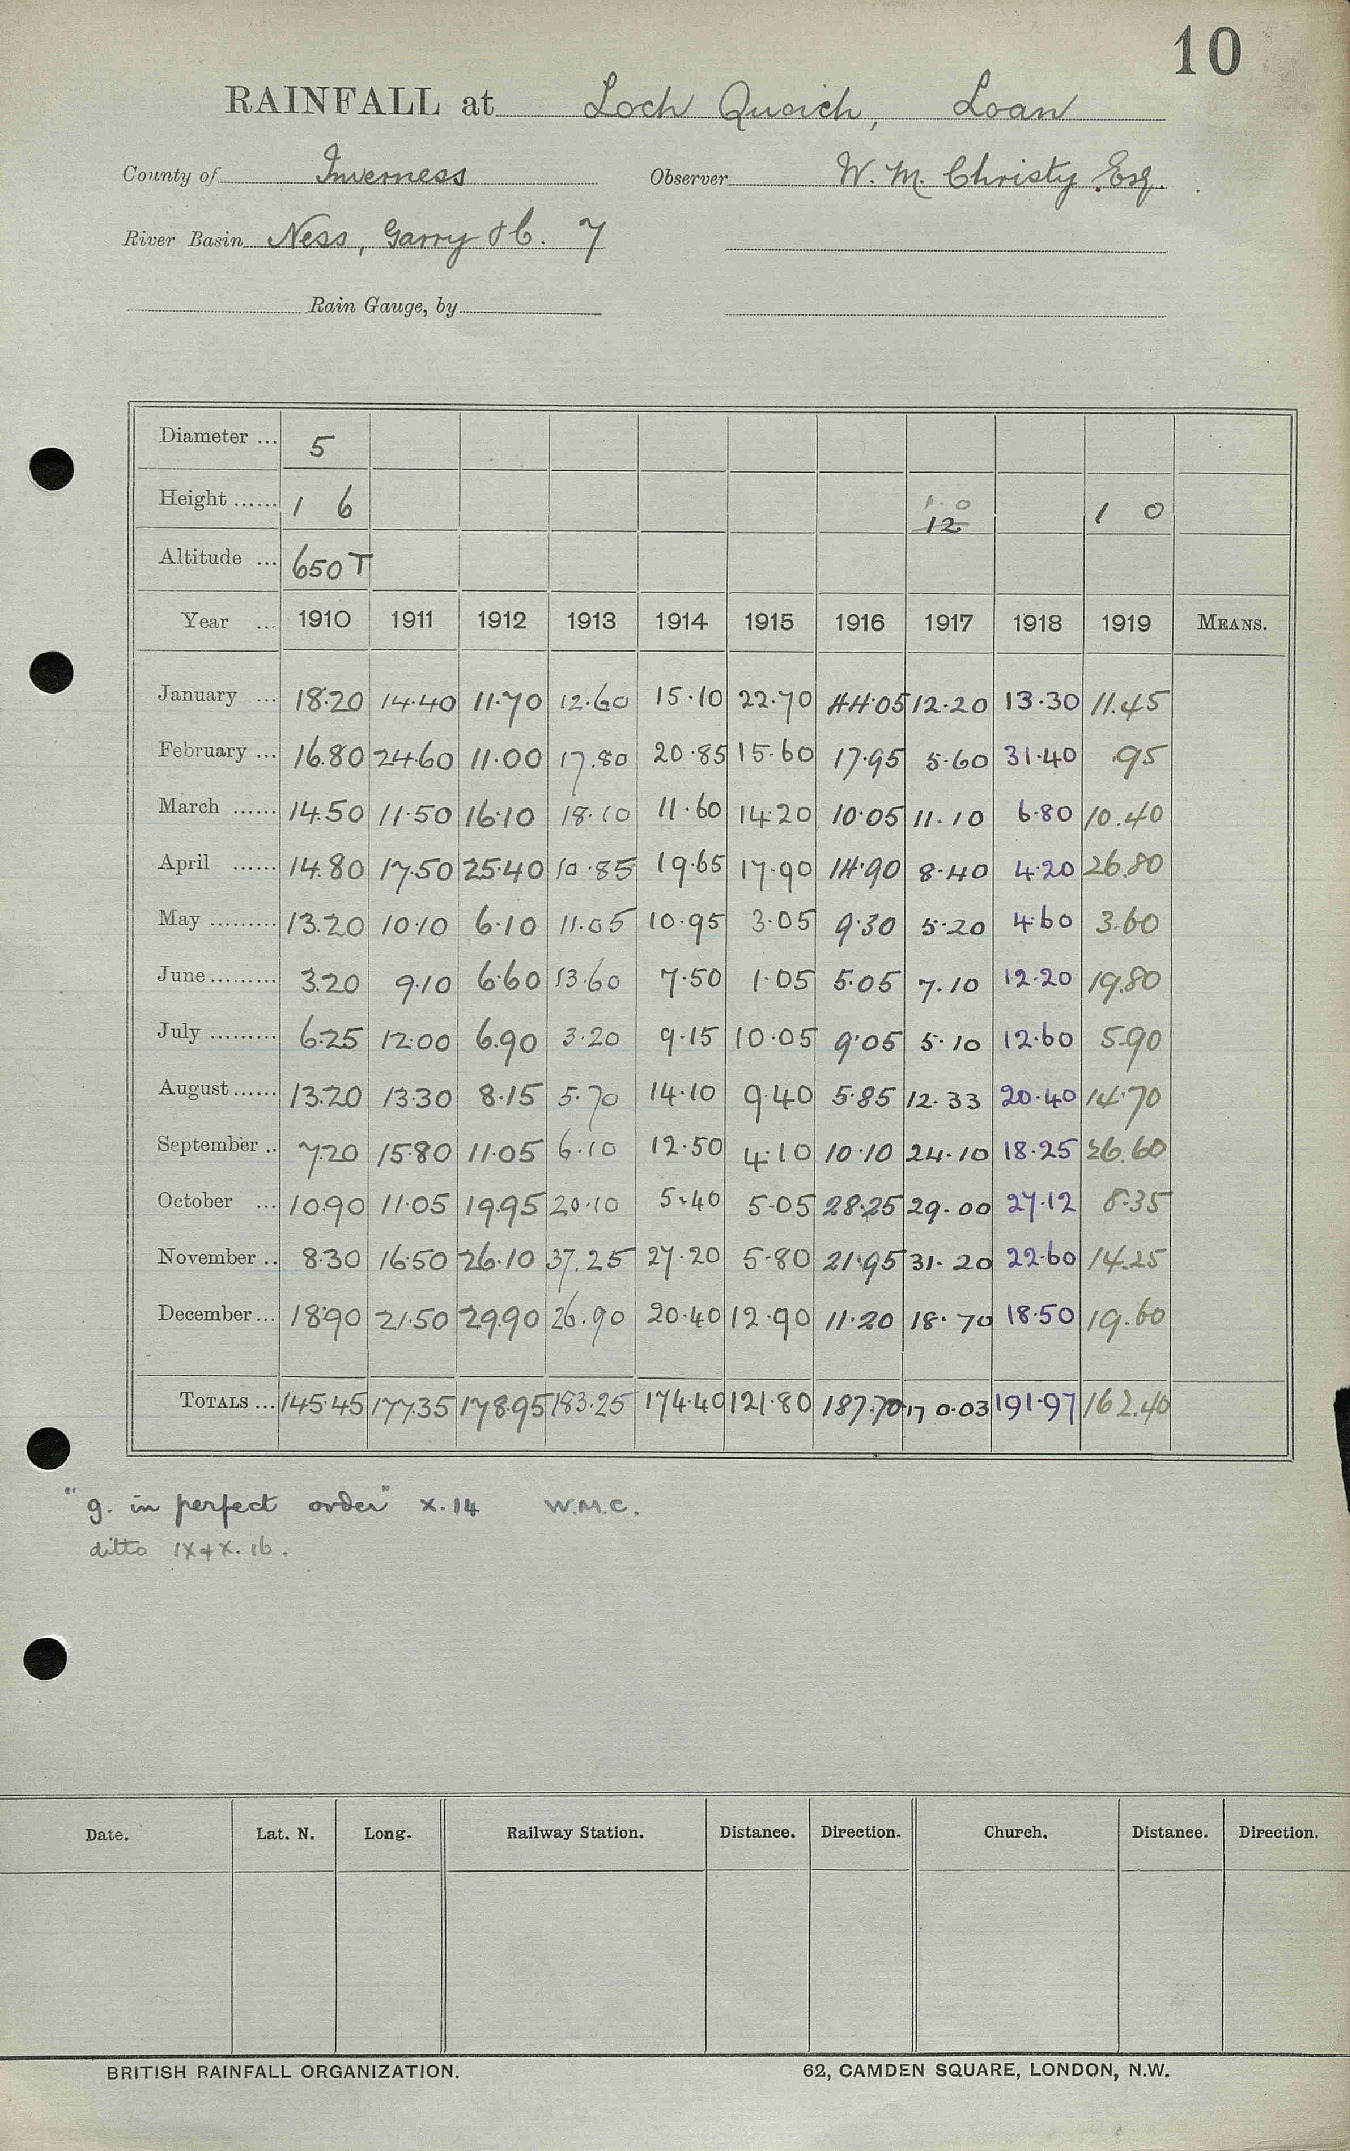 10
RAINFALL at Loch Quoich, Loan
County of Inverness Observer W. M. Christy Esq.
River Basin Ness, Garry &c. 7
Rain Gauge, by
Diameter ... 5
Height ...... 1 6 1 0 12 1 0
Altitude ... 650 T
Year ... 1910 1911 1912 1913 1914 1915 1916 1917 1918 1919 MEANS.
January ... 18.20 14.40 11.70 12.60 15.10 22.70 44.05 12.20 13.30 11.45
February ... 16.80 24.60 11.00 17.80 20.85 15.60 17.95 5.60 31.40 .95
March ...... 14.50 11.50 16.10 18.10 11.60 14.20 10.05 11.10 6.80 10.40
April ...... 14.80 17.50 25.40 10.85 19.65 17.90 14.90 8.40 4.20 26.80
May ......... 13.20 10.10 6.10 11.05 10.95 3.05 9.30 5.20 4.60 3.60
June ......... 3.20 9.10 6.60 13.60 7.50 1.05 5.05 7.10 12.20 19.80
July ......... 6.25 12.00 6.90 3.20 9.15 10.05 9.05 5.10 12.60 5.90
August ...... 13.20 13.30 8.15 5.70 14.10 9.40 5.85 12.33 20.40 14.70
September .. 7.20 15.80 11.05 6.10 12.50 4.10 10.10 24.10 18.25 26.60
October ... 10.90 11.05 19.95 20.10 5.40 5.05 28.25 29.00 27.12 8.35
November .. 8.30 16.50 26.10 37.25 27.20 5.80 21.95 31.20 22.60 14.25
December ... 18.90 21.50 29.90 26.90 20.40 12.90 11.20 18.70 18.50 19.60
TOTALS ... 145.45 177.35 178.95 183.25 174.40 121.80 187.70 170.03 191.97 162.40
"g. in perfect order" x.14 W.M.C.
ditto 1X+X.16.
Date. Lat. N. Long. Railway Station. Distance. Direction. Church. Distance. Direction.
BRITISH RAINFALL ORGANIZATION. 62, CAMDEN SQUARE, LONDON, N.W.